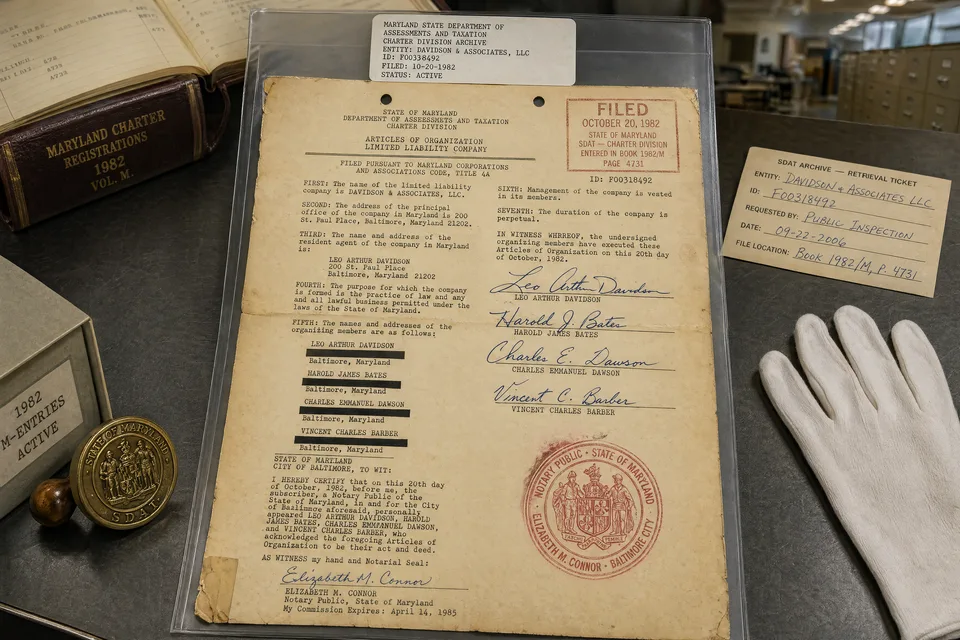 MARYLAND STATE DEPARTMENT OF
ASSESSMENTS AND TAXATION
CHARTER DIVISION ARCHIVE
ENTITY: DAVIDSON & ASSOCIATES, LLC
ID: F00338492
FILED: 10-20-1982
STATUS: ACTIVE
MARYLAND CHARTER
REGISTRATIONS
1982
VOL. M.
STATE OF MARYLAND
DEPARTMENT OF ASSESSMETS AND TAXATION
CHARTER DIVISION
ARTICLES OF ORGANIZATION
LIMITED LIABILITY COMPANY
FILED PURSUANT TO MARYLAND CORPORATIONS
AND ASSOCIATIONS CODE, TITLE 4A
FILED
OCTOBER 20, 1982
STATE OF MARYLAND
SDAT — CHARTER DIVISION
ENTERED IN BOOK 1982/M
PAGE 4731
ID: F00318492
FIRST: The name of the limited liability
company is DAVIDSON & ASSOCIATES, LLC.
SECOND: The address of the principal
office of the company in Maryland is 200
St. Paul Place, Baltimore, Maryland 21202.
THIRD: The name and address of the
resident agent of the company in Maryland
is:
LEO ARTHUR DAVIDSON
200 St. Paul Place
Baltimore, Maryland 21202
FOURTH: The purpose for which the company
is formed is the practice of law and any
and all lawful business permitted under the
laws of the State of Maryland.
FIFTH: The names and addresses of the
organizing members are as follows:
LEO ARTHUR DAVIDSON
Baltimore, Maryland
HAROLD JAMES BATES
Baltimore, Maryland
CHARLES EMMANUEL DAWSON
Baltimore, Maryland
VINCENT CHARLES BARBER
Baltimore, Maryland
STATE OF MARYLAND
CITY OF BALTIMORE, TO WIT:
I HEREBY CERTIFY that on this 20th day
of October, 1982, before me, the
subscriber, a Notary Public of the
State of Maryland, in and for the City
of Baltimore aforesaid, personally
appeared LEO ARTHUR DAVIDSON, HAROLD
JAMES BATES, CHARLES EMMANUEL DAWSON,
and VINCENT CHARLES BARBER, who
acknowledged the foregoing Articles of
Organization to be their act and deed.
AS WITNESS my hand and Notarial Seal:
Elizabeth M. Connor
ELIZABETH M. CONNOR
Notary Public, State of Maryland
My Commission Expires: April 14, 1985
SIXTH: Management of the company is vested
in its members.
SEVENTH: The duration of the company is
perpetual.
IN WITNESS WHEREOF, the undersigned
organizing members have executed these
Articles of Organization on this 20th day
of October, 1982.
Leo Arthur Davidson
LEO ARTHUR DAVIDSON
Harold J Bates
HAROLD JAMES BATES
Charles E. Dawson
CHARLES EMMANUEL DAWSON
Vincent C. Barber
VINCENT CHARLES BARBER
NOTARY PUBLIC · STATE OF MARYLAND
ELIZABETH M. CONNOR · BALTIMORE CITY
SDAT ARCHIVE — RETRIEVAL TICKET
ENTITY: DAVIDSON & ASSOCIATES LLC
ID: F00318492
REQUESTED BY: PUBLIC INSPECTION
DATE: 09-22-2006
FILE LOCATION: BOOK 1982/M, P. 4731
1982
M-ENTRIES
ACTIVE
STATE OF MARYLAND
SDAT